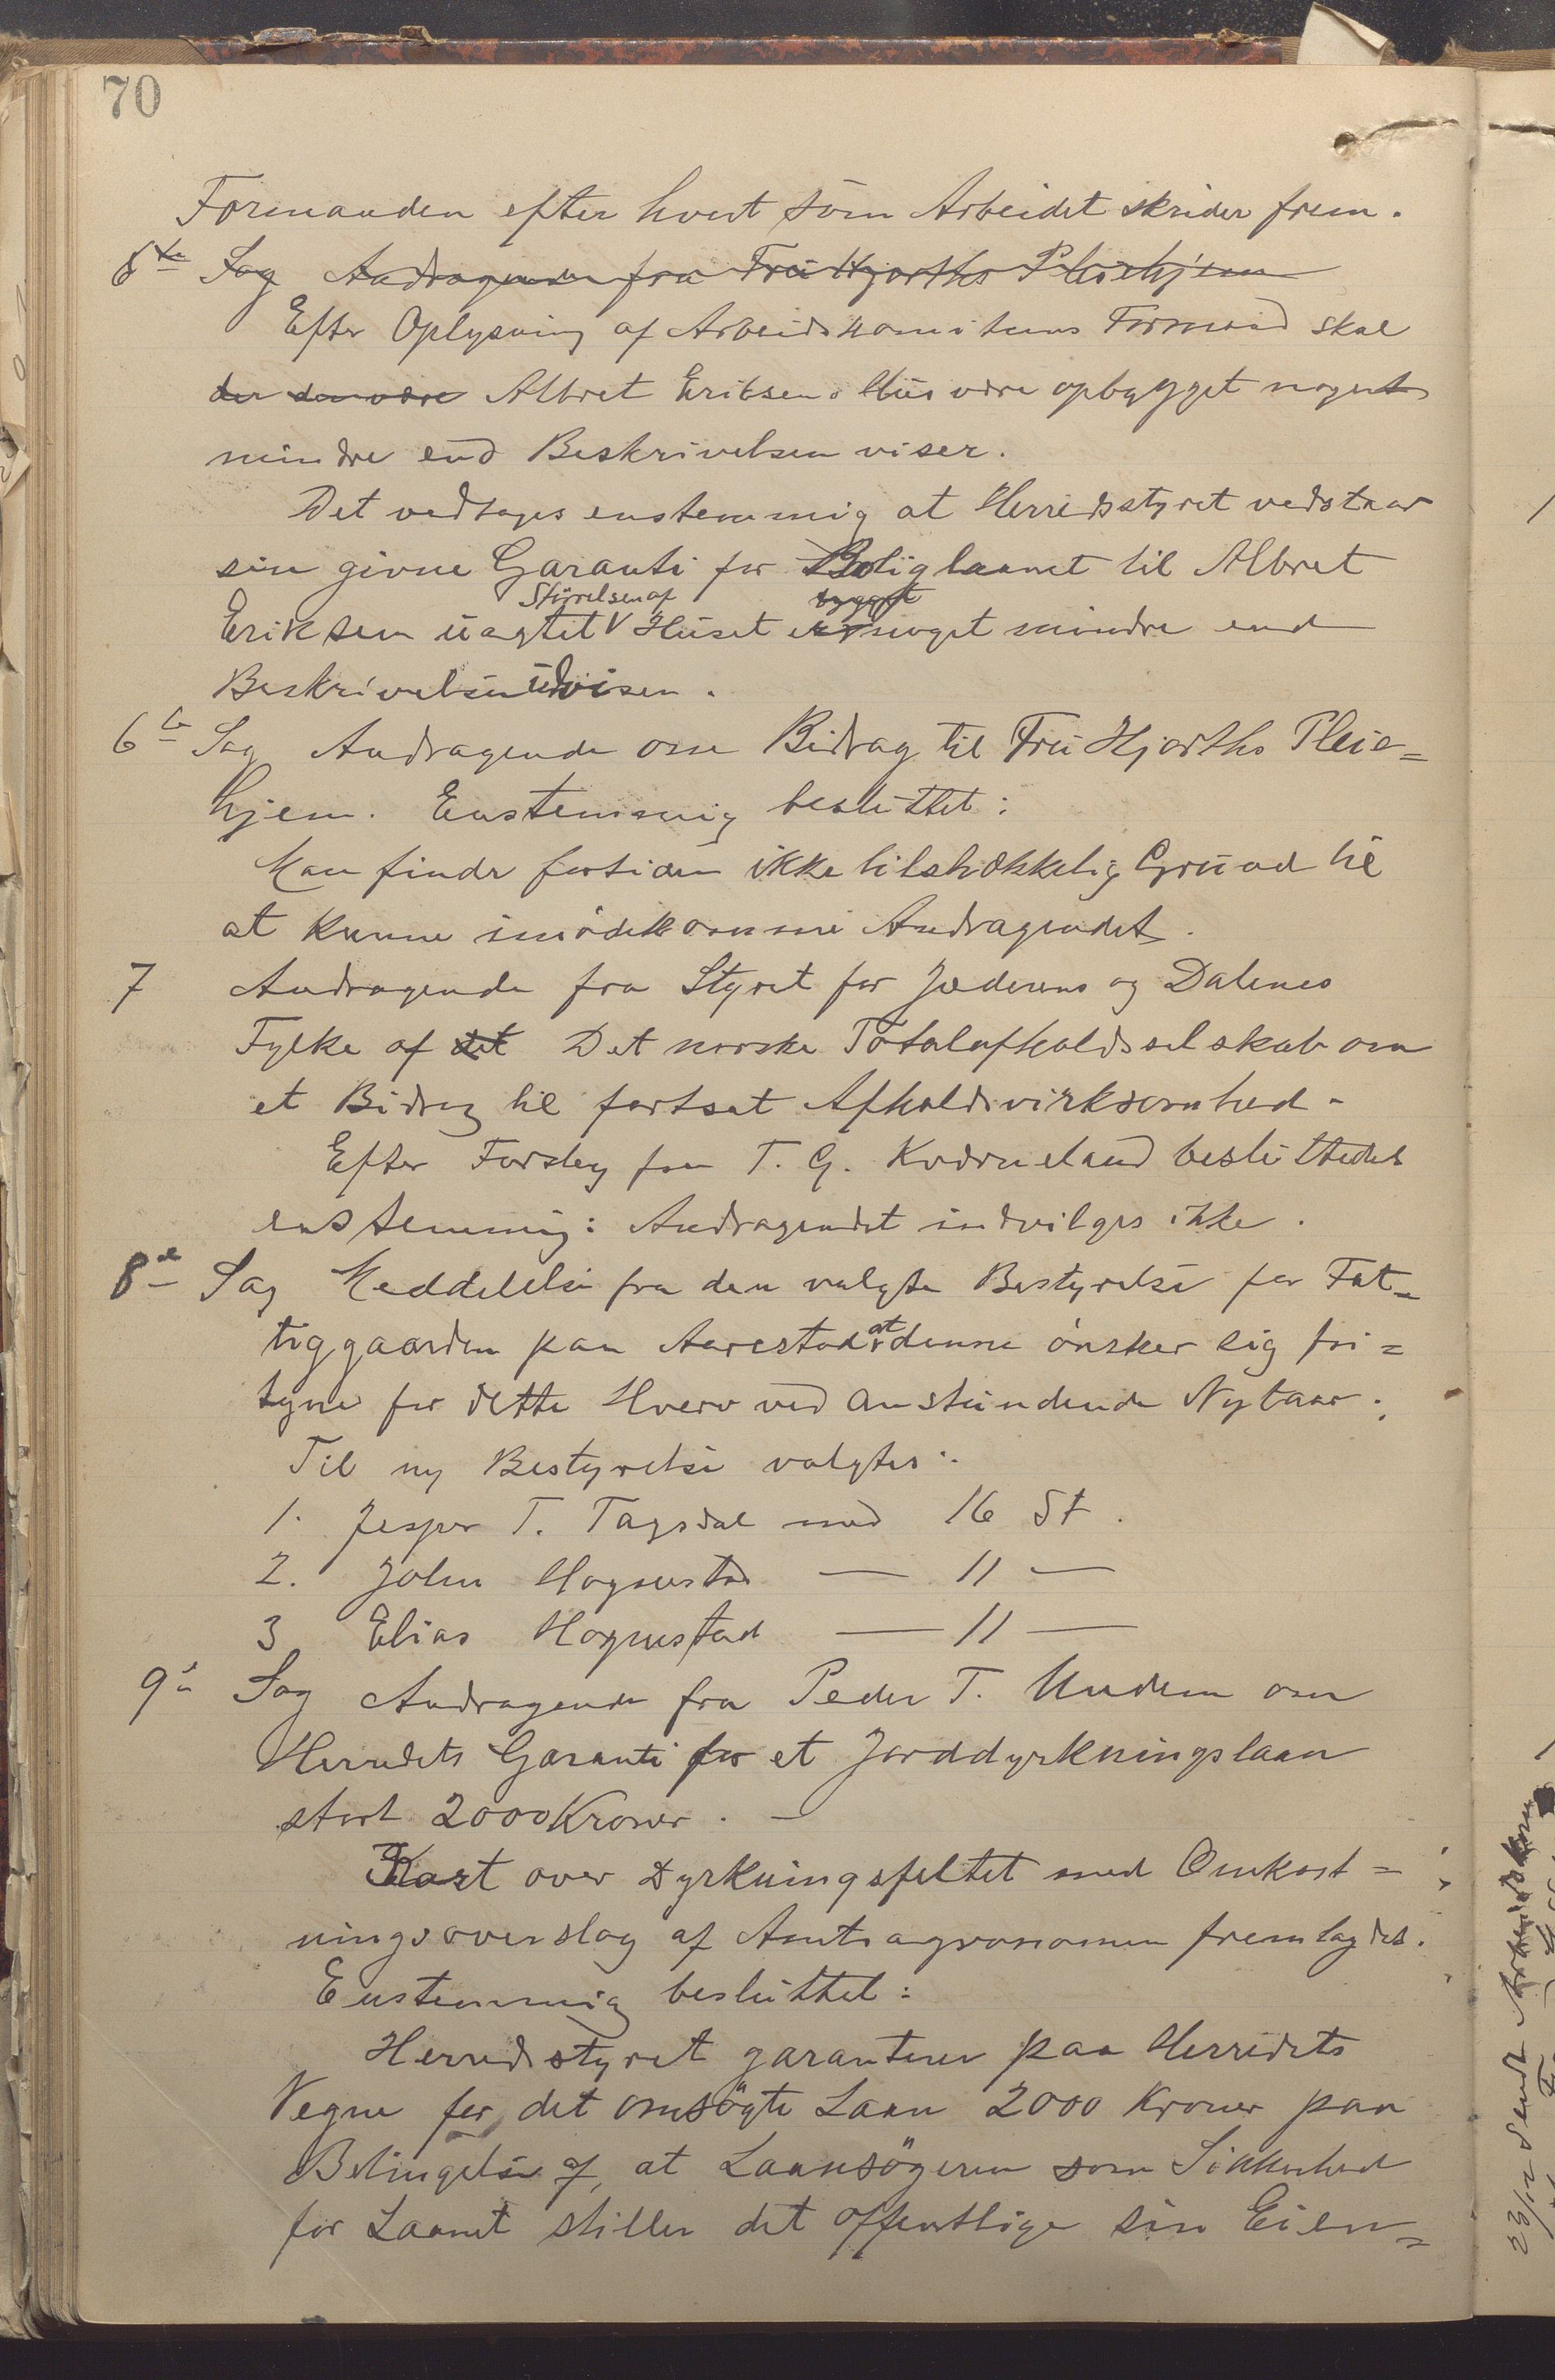 70
Formanden efter hvert som Arbeidet skrider frem.
6te Sag Andragende fra Fru Hjorths Pleiehjem
Efter Oplysning af Arbeidskomiteens Formand skal
der den være Albret Eriksens Hus være opbygget noget
mindre end Beskrivelsen viser.
Det vedtoges enstemmig at Herredsstyret vedstaar
sin givne Garanti for Boliglaanet til Albret
Størrelsen af bygget
Eriksen uagtet V Huset er noget mindre end
Beskrivelsen udviser.
6te Sag Andragende om Bidrag til Fru Hjorths Pleie=
hjem. Enstemmig besluttet:
Man finder fortiden ikke tilstrækkelig Grund til
at kunne imødekomme Andragendet.
7 Andragende fra Styret for Jæderens og Dalenes
Fylke af det Det norske Totalafholdsselskab om
et Bidrag til fortsat Afholdsvirksomhed.
Efter Forslag fra T. G. Kværneland besluttedes
enstemmig: Andragendet indvilges ikke.
8de Sag Meddelelse fra den valgte Bestyrelse for Fat=
tiggaarden paa Aarestad at denne ønsker sig fri=
tagne for dette Hverv ved anstundende Nytaar.
Til ny Bestyrelse valgtes:
1. Jesper T. Tagsdal med 16 St.
2. John Hognestad — 11 —
3 Elias Hognestad — 11 —
9de Sag Andragende fra Peder T. Undem om
Herredets Garanti for et Jorddyrkningslaan
stort 2000 Kroner. —
Kart over Dyrkningsfeltet med Omkost=
ningsoverslag af Amtsagronomen fremlagdes.
Enstemmig besluttet:
Herredsstyret garanterer paa Herredets
Vegne for det omsøgte Laan 2000 Kroner paa
Betingelse af, at Laansøgeren som Sikkerhed
for Laanet stiller det offentlige sin Eien=
23/12 sendt